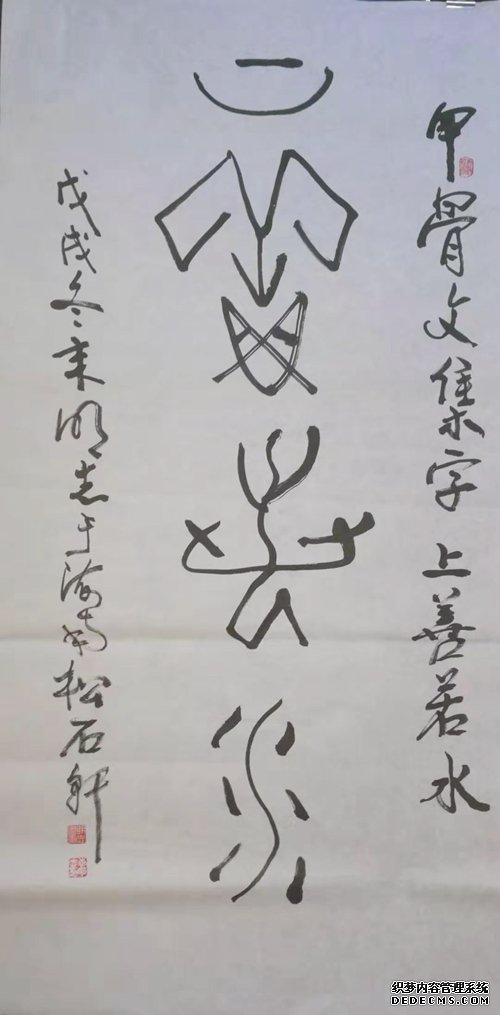 甲骨文集字 上善若水
上善若水
戊戌冬末明志于渝南松石轩
织梦内容管理系统
DEDECMS.COM